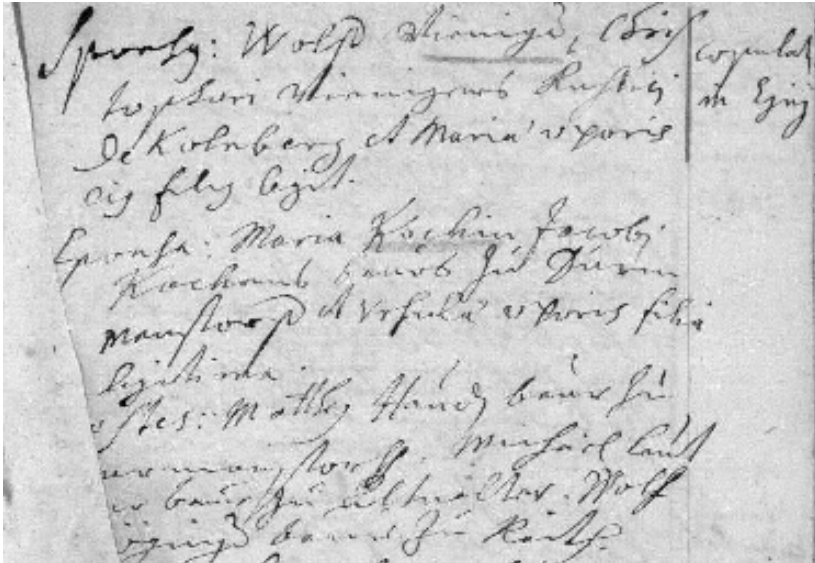 Sponsus: Wolf Vieniger, Chris
tophori Vienigers Rustici
de Kolnberg et Maria uxoris
eius filius legit.
Sponsa: Maria Kochin Jacobi
Kochens baurs zu Dürn
manstorf et Ursula uxoris filia
legitima.
stes: Matthes baur zu
manstorff. Michael
baur zu Wolf
baur zu Reith.
copulati
in